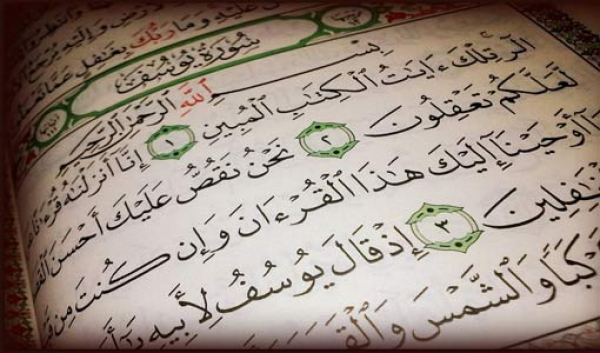 وَإِلَيْهِ يُرْجَعُ
عَلَيْهِ وَمَا رَبُّكَ بِغَٰفِلٍ عَمَّا
سُورَةُ يُوسُفَ
بِسْمِ ٱللَّهِ ٱلرَّحْمَٰنِ ٱلرَّحِيمِ
الٓر تِلْكَ ءَايَٰتُ ٱلْكِتَٰبِ ٱلْمُبِينِ ١ إِنَّآ أَنزَلْنَٰهُ
لَّعَلَّكُمْ تَعْقِلُونَ ٢ نَحْنُ نَقُصُّ عَلَيْكَ أَحْسَنَ
أَوْحَيْنَآ إِلَيْكَ هَٰذَا ٱلْقُرْءَانَ وَإِن كُنتَ مِن
ٱلْغَٰفِلِينَ ٣ إِذْ قَالَ يُوسُفُ لِأَبِيهِ
كَبًا وَٱلشَّمْسَ وَٱلْقَمَرَ